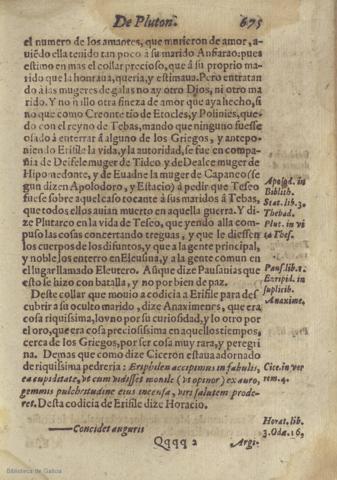 De Pluton. 675
el numero de los amantes, que murieron de amor, a-
uiẽdo ella tenido tan poco à su marido Anfiarao: pues
estimo en mas el collar precioso, que à su proprio ma-
rido que la honraua, queria, y estimaua. Pero entratan
do à las mugeres de galas no ay otro Dios, ni otro ma
rido. Y no hizo otra fineza de amor que aya hecho, si
no que como Creonte tio de Etocles, y Polinies, que-
dò con el reyno de Tebas, mando que ninguno fuesse
osado à enterrar à alguno de los Griegos, y antepo-
niendo Erifile la vida, y la autoridad, se fue en compa-
ñia de Deifele muger de Tideo y de Dealce muger de
Hipomedonte, y de Euadne la muger de Capaneo (se
gun dizen Apolodoro, y Estacio) à pedir que Teseo
fuesse sobre aquel caso tocante à sus maridos à Tebas,
que todos ellos auian muerto en aquella guerra. Y di-
ze Plutarco en la vida de Teseo, que yendo alla com-
puso las cosas concertando treguas, y que le diessen
los cuerpos de los difuntos, y que a la gente principal,
y noble los enterro en Eleusina, y à la gente comun en
el lugar llamado Eleutero. Aũque dize Pausanias que
esto se hizo con batalla, y no por bien de paz.
Deste collar que mouio a codicia a Erifile para des
cubrir a su oculto marido, dize Anaximenes, que era
cosa riquissima, lo vno por su curiosidad, y lo otro por
el oro, que era cosa preciosissima en aquellos tiempos,
cerca de los Griegos, por ser cosa muy rara, y peregri
na. Demas que como dize Ciceron estaua adornado
de riquissima pedreria: Eriphilen accipimus in fabulis,
ea cupiditate, vt cum vidisset monile (vt opinor) ex auro,
gemmis pulchritudine eius incensa, viri salutem prode-
ret. Desta codicia de Erifile dize Horacio.
Concidet auguris
Qqqq 2 Argi-
Apolod. in
Biblioth.
Stat. lib. 3.
Thebad.
Plut. in vi
ta Thes.
Paus. lib. 1.
Euripid. in
suplicib.
Anaxime.
Cice. in ver
rem. 4.
Horat. lib.
3. Oda. 16,
Biblioteca de Galicia